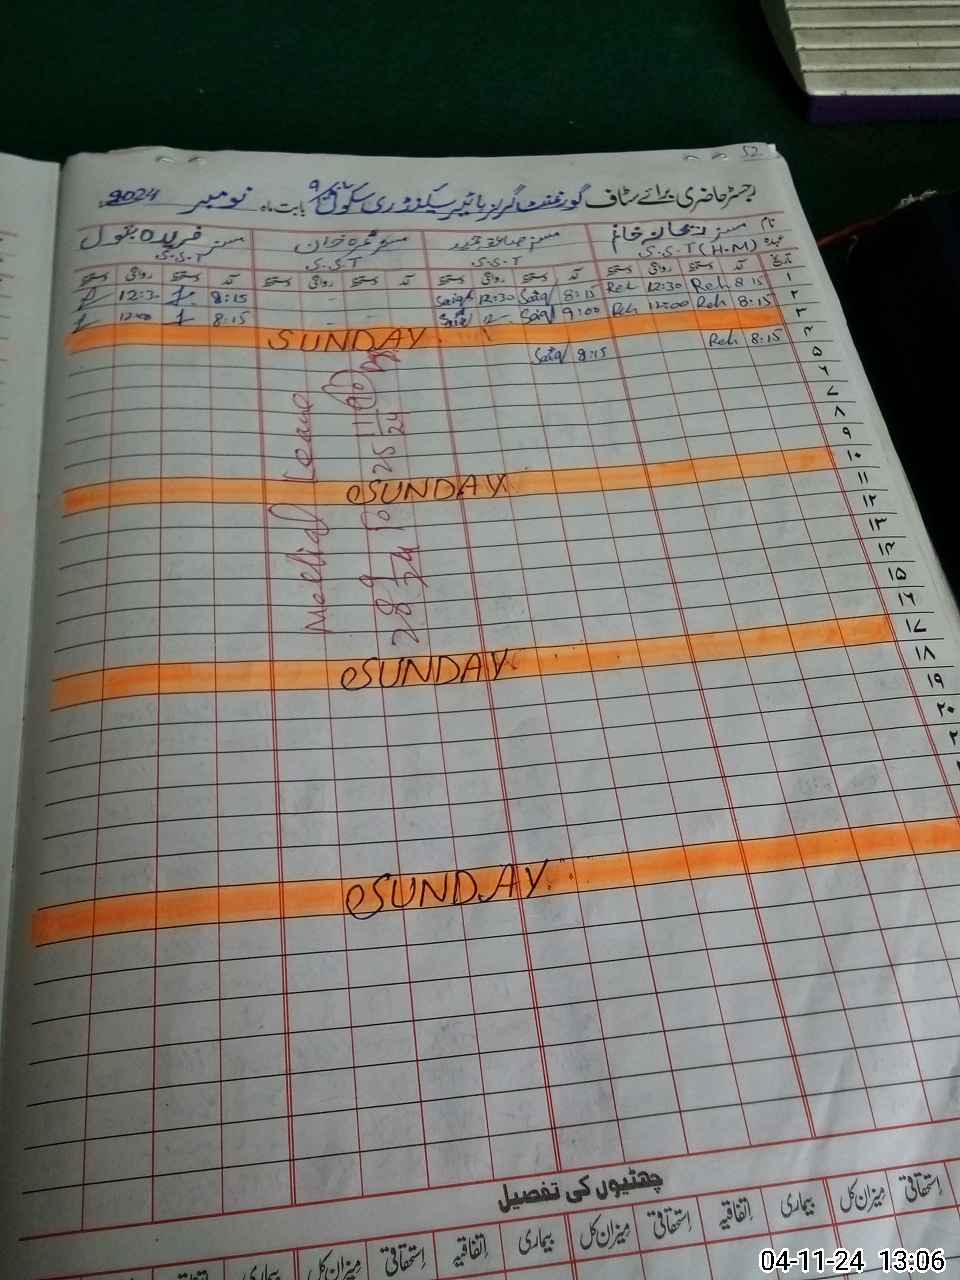 52
رجسٹر حاضری برائے سٹاف گورنمنٹ گرلز ہائیر سیکنڈری سکول بابت ماہ نومبر 2024
نام مسز ریحانہ خانم مسز مسز خان مسز فریدہ بتول
عہدہ S.S.T (H.M) S.S.T S.S.T S.S.T
تاریخ آمد دستخط روانگی دستخط آمد دستخط روانگی دستخط آمد دستخط روانگی دستخط آمد دستخط روانگی دستخط
۱ 8:15 Reh 12:30 Reh 8:15 Saiq 12:30 Saiq - - 8:15 12:30
۲ 8:15 Reh 12:00 Reh 9:00 Saiq 12 - Saiq - - 8:15 12:00
۳ SUNDAY
۴ 8:15 Reh 8:15 Saiq
۵
۶
۷
۸
۹
۱۰ SUNDAY
۱۱
۱۲
۱۳
۱۴
۱۵
۱۶
۱۷ SUNDAY
۱۸
۱۹
۲۰
SUNDAY
Medical Leave
28 9/24 To 25 11/24 (90)
چھٹیوں کی تفصیل
استحقاقی میزان کل بیماری اتفاقیہ استحقاقی میزان کل بیماری اتفاقیہ استحقاقی میزان کل بیماری
04-11-24 13:06